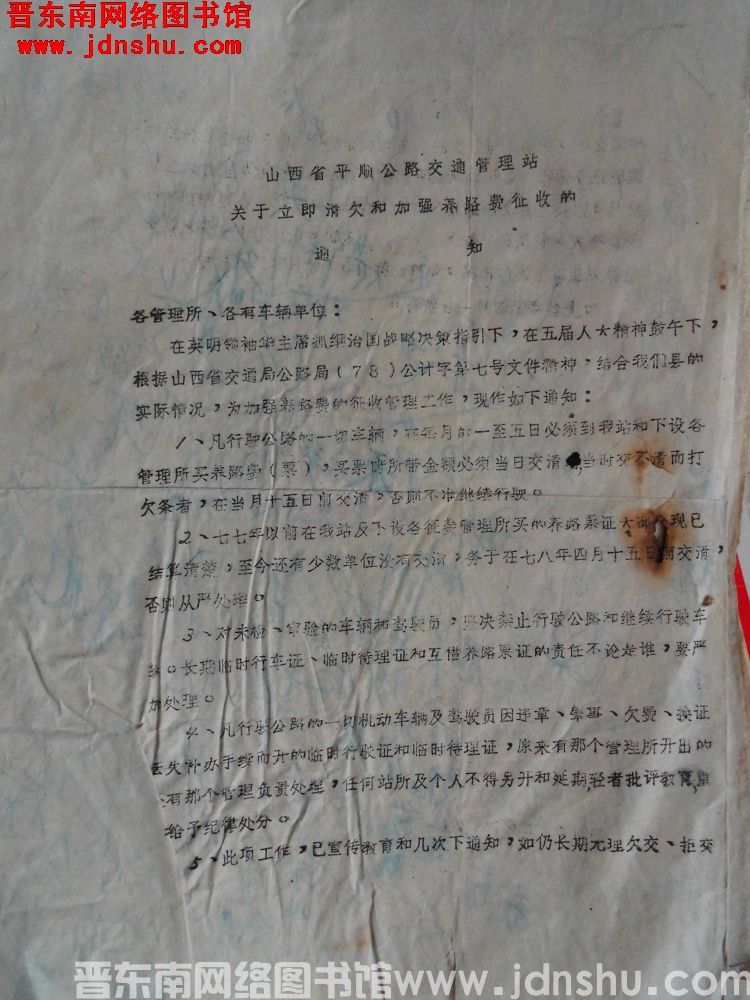 晋东南网络图书馆
www.jdnshu.com
山西省平顺公路交通管理站
关于立即清欠和加强养路费征收的
通知
各管理所、各有车辆单位：
在英明领袖华主席抓纲治国战略决策指引下，在五届人大精神鼓午下，
根据山西省交通局公路局（78）公计字第七号文件精神，结合我们县的
实际情况，为加强养路费的征收管理工作，现作如下通知：
1、凡行驶公路的一切车辆，在每月的一至五日必须到我站和下设各
管理所买养路费（票），买票时所带金额必须当日交清，当时交不清而打
欠条者，在当月十五日前交清，否则不准继续行驶。
2、七七年以前在我站及下设各征费管理所买的养路票证大部分现已
结算清楚，至今还有少数单位没有交清，务于在七八年四月十五日前交清，
否则从严处理。
3、对未检、审验的车辆和驾驶员，坚决禁止行驶公路和继续行驶车
辆。长期临时行车证、临时待理证和互借养路票证的责任不论是谁，要严
加处理。
4、凡行驶公路的一切机动车辆及驾驶员因违章、肇事、欠费、换证
丢失补办手续而开的临时行驶证和临时待理证，原来有那个管理所开出的
还有那个管理负责处理，任何站所及个人不得另开和延期，轻者批评教育，重
给予纪律处分。
5、此项工作，已宣传教育和几次下通知，如仍长期无理欠交、拒交
晋东南网络图书馆www.jdnshu.com